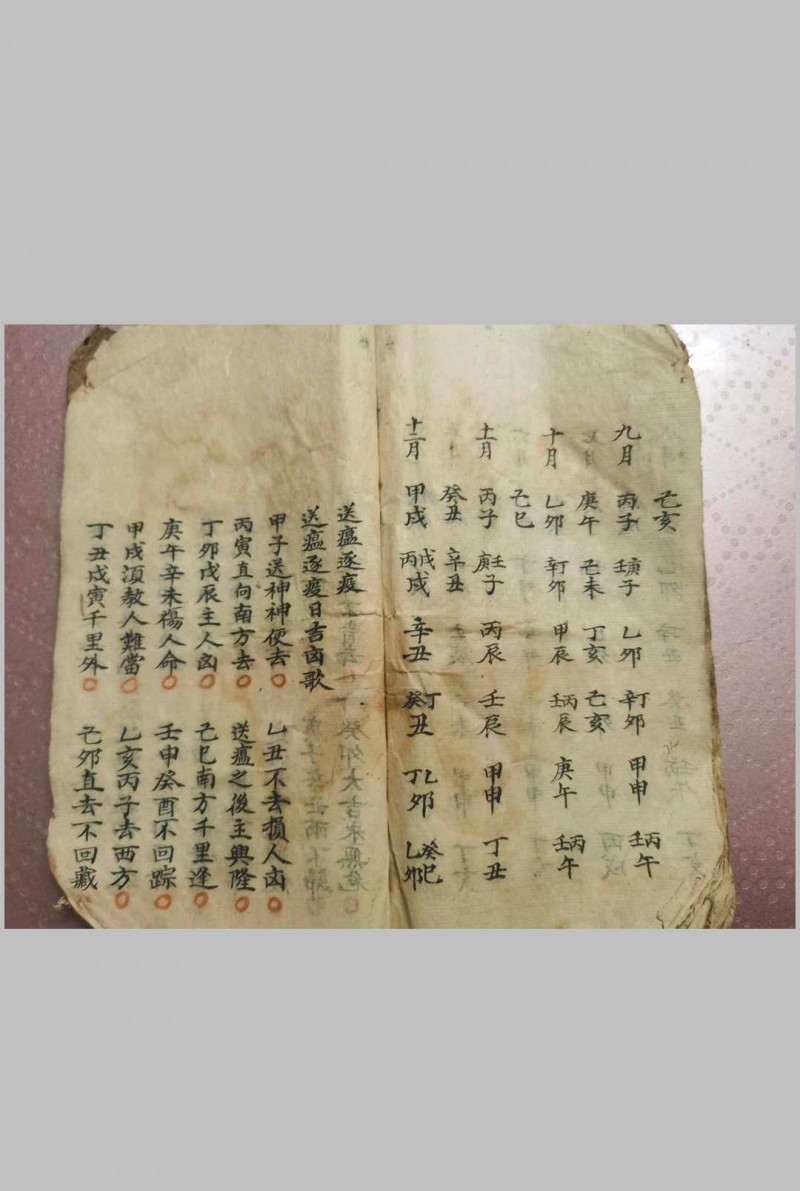 己亥
九月 丙子 壬庚子 乙卯 辛丁卯 甲申 壬丙午
庚午 己未 丁亥 己亥
十月 乙卯 辛丁卯 甲辰 壬丙辰 庚午 壬丙午
己巳
十一月 丙子 庚壬子 丙辰 壬辰 甲申 丁丑
癸丑 辛丑
十二月 甲戌 丙戊戌 辛丑 癸丁丑 丁乙卯
送瘟逐疫
送瘟逐疫日吉凶歌
甲子送神神便去 乙丑不去損人凶
丙寅直向南方去 送瘟之後主興隆
丁卯戊辰主人凶 己巳南方千里逢
庚午辛未傷人命 壬申癸酉不回踪
甲戌須教人難當 乙亥丙子去西方
丁丑戊寅千里外 己卯直去不回藏